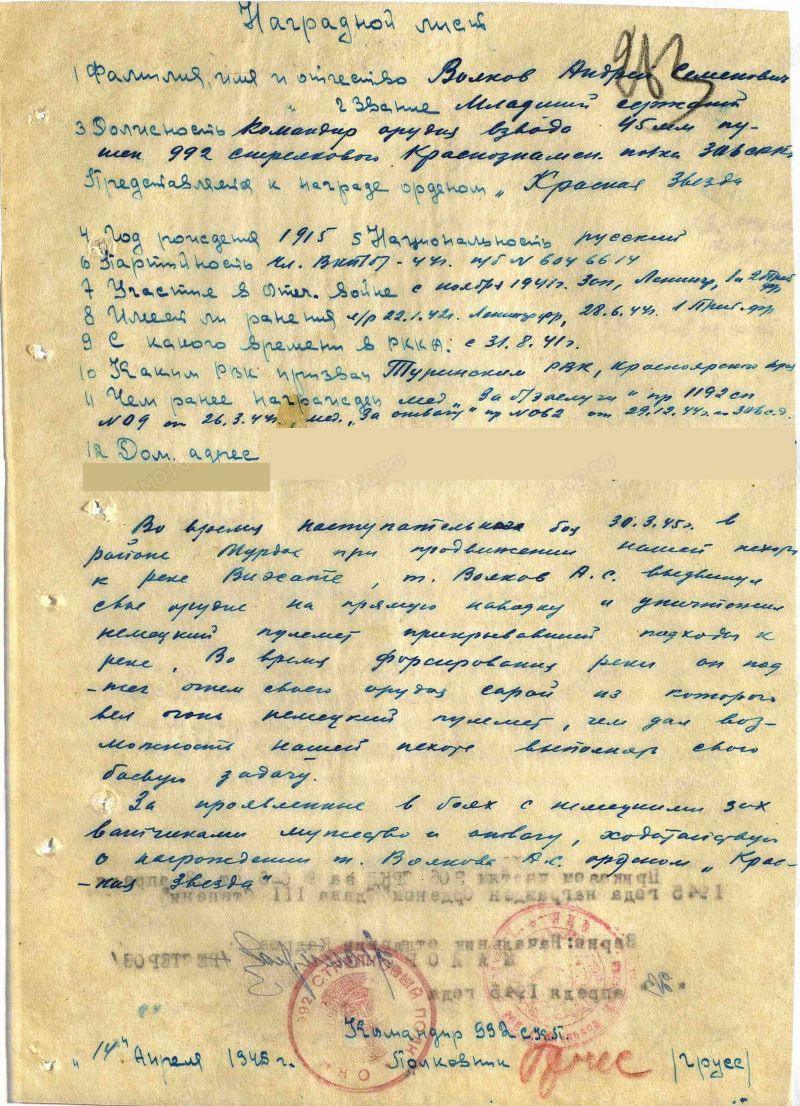 Наградной лист
283
1 Фамилия, имя и отчество Волков Андрей Семенович
2 Звание Младший сержант
3 Должность командир орудия взвода 45мм пу-
шек 992 стрелкового Краснознамен. полка
Представляется к награде орденом „Красная Звезда
4 Год рождения 1915 5 Национальность русский
6 Партийность чл. ВКПб - 44г. п/б N 6046614
7 Участие в Отеч. войне с ноября 1941г. Зап, Ленингр, 1 и 2 Приб фр
8 Имеет ли ранения л/р 22.1.42г. Ленингр фр, 28.6.44г. 1 Приб. фр
9 С какого времени в РККА: с 31.8.41г.
10 Каким РВК призван Туринским РВК, Красноярского края
11 Чем ранее награжден мед „За б/заслуги" пр 1192 сп
N09 от 26.3.44г., мед. „За отвагу" пр N062 от 29.12.44г.
12 Дом. адрес
Во время наступательного боя 30.3.45г. в
районе при продвижении нашей пехоты
к реке т. Волков А.С. выдвинул
свое орудие на прямую наводку и уничтожил
немецкий пулемет прикрывавший подходы к
реке. Во время форсирования реки он под
-жег огнем своего орудия сарай из которого
вел огонь немецкий пулемет, чем дал воз-
можность нашей пехоте выполнять свою
боевую задачу.
За проявленные в боях с немецкими зах
ватчиками мужество и отвагу, ходатайствую
о награждении т. Волкова А.С. орденом „Крас-
-ная Звезда"
Приказом частям 206
1945 года награжден орденом "Слава III степени"
Верно: Начальник отделения кадров
МАЙОР /НЕСТЕРОВ/
"23" апреля 1945 года
992 СТРЕЛКОВЫЙ ПОЛК
Командир 992 с.к.п.
„14" Апреля 1945г. Полковник /Грусс/